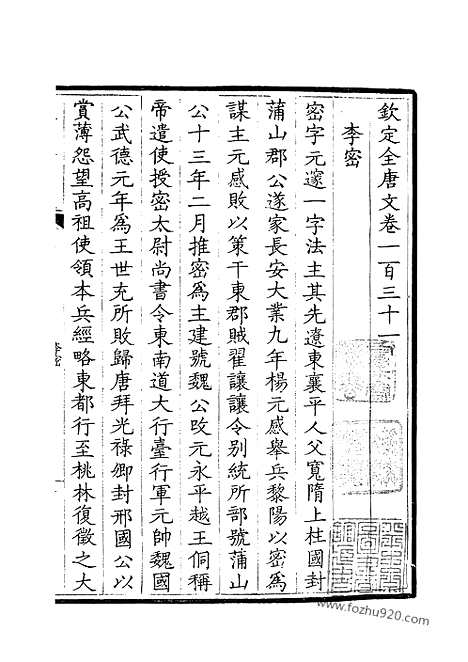 欽定全唐文卷一百三十一
李密
密字元邃一字法主其先遼東襄平人父寬隋上柱國封
蒲山郡公遂家長安大業九年楊元感舉兵黎陽以密為
謀主元感敗以策干東郡賊翟讓讓令別統所部號蒲山
公十三年二月推密為主建號魏公改元永平越王侗稱
帝遣使授密太尉尚書令東南道大行臺行軍元帥魏國
公武德元年為王世充所敗歸唐拜光祿卿封邢國公以
賞薄怨望高祖使領本兵經略東都行至桃林復徵之大
李密
一
www.fozhu920.com